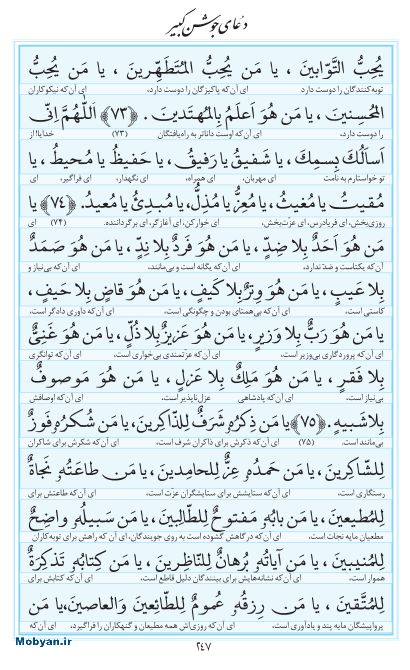 دعای جوشن کبیر
یُحِبُّ التَّوّابینَ ، یا مَن یُحِبُّ المُتَطَهِّرینَ ، یا مَن یُحِبُّ
توبه‌کنندگان را دوست دارد ای آن‌که پاکیزگان را دوست دارد، ای آن‌که نیکوکاران
المُحسِنینَ ، یا مَن هُوَ اَعلَمُ بِالمُهتَدینَ . ﴿۷۳﴾ اَللّهُمَّ اِنّی
را دوست دارد، ای آن‌که اوست داناتر به راه‌یافتگان (۷۳) خدایا! از
اَساَلُکَ بِسمِکَ ، یا شَفیقُ یا رَفیقُ ، یا حَفیظُ یا مُحیطُ ، یا
تو خواستارم به نامت ای مهربان، ای همراه، ای نگهدار، ای فراگیر، ای
مُقیتُ یا مُغیثُ ، یا مُعِزُّ یا مُذِلُّ ، یا مُبدِئُ یا مُعیدُ. ﴿۷۴﴾ یا
روزی‌بخش، ای فریادرس، ای عزت‌بخش، ای خوارکن، ای آغازگر، ای برگرداننده. (۷۴) ای
مَن هُوَ اَحَدٌ بِلا ضِدٍّ ، یا مَن هُوَ فَردٌ بِلا نِدٍّ ، یا مَن هُوَ صَمَدٌ
آن‌که یکتاست و ضد ندارد، ای آن‌که یگانه است و بی‌مانند، ای آن‌که بی‌نیاز و
بِلا عَیبٍ ، یا مَن هُوَ وِترٌ بِلا کَیفٍ ، یا مَن هُوَ قاضٍ بِلا حَیفٍ ،
کاستی است، ای آن‌که بی‌همتای بودن و چگونگی است، ای آن‌که داوری دادگر است،
یا مَن هُوَ رَبٌّ بِلا وَزیرٍ، یا مَن هُوَ عَزیزٌ بِلا ذُلٍّ ، یا مَن هُوَ غَنِیٌّ
ای آن‌که پروردگاری بی‌وزیر است، ای آن‌که عزتمندی بی‌خواری است، ای آن‌که توانگری
بِلا فَقرٍ ، یا مَن هُوَ مَلِکٌ بِلا عَزلٍ ، یا مَن هُوَ مَوصوفٌ
بی‌نیاز است، ای آن‌که پادشاهی عزل‌ناپذیر است، ای آن‌که اوصافش
بِلا شَبیهٍ . ﴿۷۵﴾ یا مَن ذِکرُهُ شَرَفٌ لِلذّاکِرینَ، یا مَن شُکرُهُ فَوزٌ
بی‌مانند است. (۷۵) ای آن‌که ذکرش برای ذاکران شرف است، ای آن‌که شکرش برای شاکران
لِلشّاکِرینَ ، یا مَن حَمدُهُ عِزٌّ لِلحامِدینَ ، یا مَن طاعَتُهُ نَجاةٌ
رستگاری است، ای آن‌که ستایشش برای ستایشگران عزت است، ای آن‌که طاعتش برای
لِلمُطیعینَ ، یا مَن بابُهُ مَفتوحٌ لِلطّالِبینَ ، یا مَن سَبیلُهُ واضِحٌ
مطیعان مایه نجات است، ای آن‌که در گاهش گشوده است به روی جویندگان، ای آن‌که راهش برای توبه‌کاران
لِلمُنیبینَ ، یا مَن آیاتُهُ بُرهانٌ لِلنّاظِرینَ ، یا مَن کِتابُهُ تَذکِرَةٌ
هموار است، ای آن‌که نشانه‌هایش برای بینندگان دلیل قاطع است، ای آن‌که کتابش برای
لِلمُتَّقینَ ، یا مَن رِزقُهُ عُمومٌ لِلطّائِعینَ وَالعاصینَ، یا مَن
پروا پیشگان مایه پند و یادآوری است، ای آن‌که روزی‌اش همه مطیعان و گنهکاران را فراگیرد، ای آن‌که
۲۴۷
Mobyan.ir